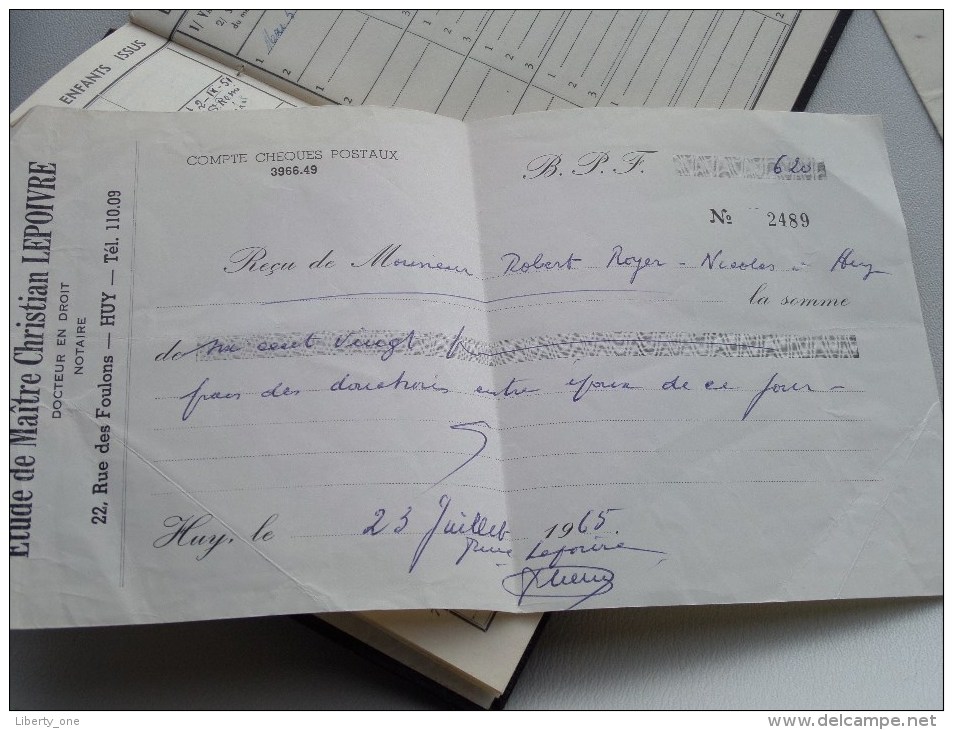 ENFANTS ISSUS
Etude de Maître Christian LEPOIVRE
DOCTEUR EN DROIT
NOTAIRE
22, Rue des Foulons — HUY — Tél. 110.09
COMPTE CHEQUES POSTAUX
3966.49
B. P. F. 620
No 2489
Reçu de Monsieur Robert Royer - Nicolas à Huy
la somme
de six cent vingt fr
frais des donations entre époux de ce jour -
Huy, le 23 Juillet 1965.
Lepoivre
Liberty_one
delcampe.net